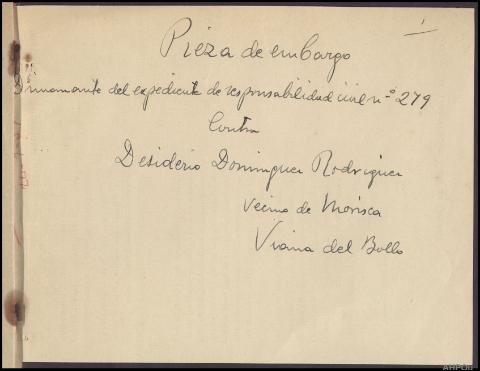 1
Pieza de embargo
Dimamante del expediente de responsabilidad civil nº 279
Contra
Desiderio Dominguez Rodriguez
Vecino de Morisca
Viana del Bollo
AHPOU